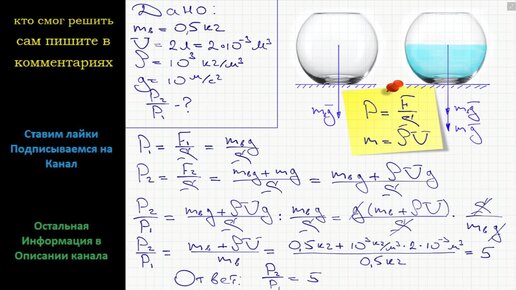 кто смог решить
сам пишите в
комментариях
Ставим лайки
Подписываемся на
Канал
Остальная
Информация в
Описании канала
Дано:
mв = 0,5кг
V = 2л = 2·10⁻³м³
ρ = 10³ кг/м³
g = 10 м/с²
P₂/P₁ - ?
mвg
mвg
mg
P = F/S
m = ρV
P₁ = F₁/S = mвg/S
P₂ = F₂/S = (mвg + mg)/S = (mвg + ρVg)/S
P₂/P₁ = (mвg + ρVg)/S : mвg/S = g(mв + ρV)/S · S/(mвg)
P₂/P₁ = (mв + ρV)/mв = (0,5кг + 10³кг/м³·2·10⁻³м³)/0,5кг = 5
Ответ: P₂/P₁ = 5